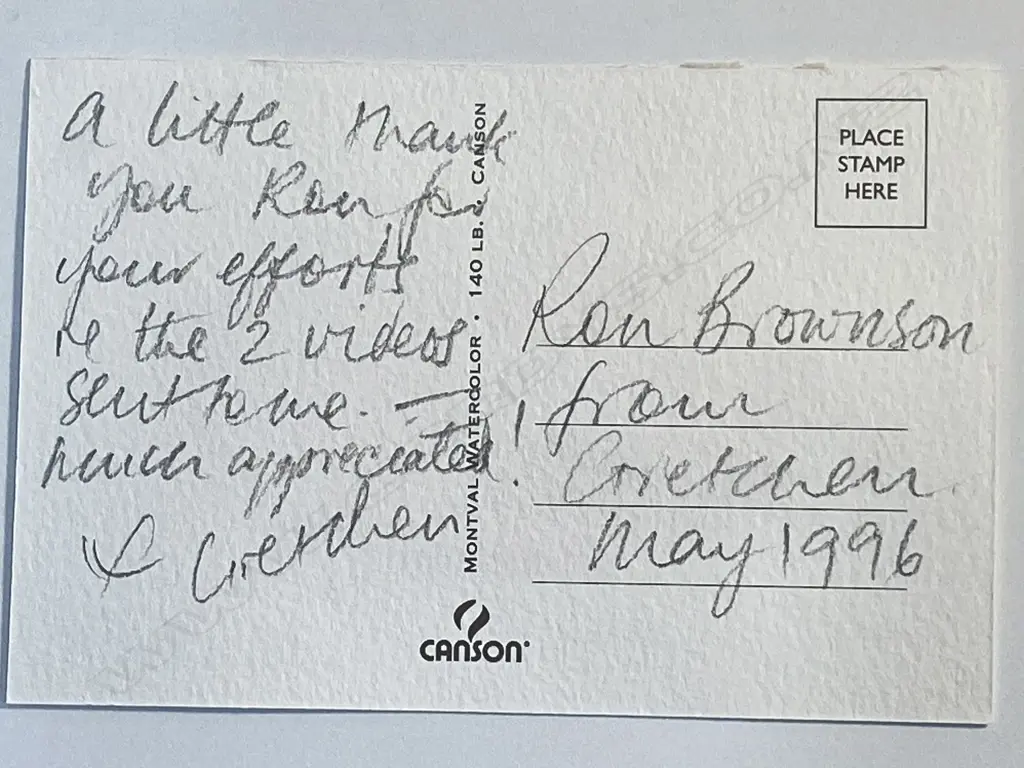 A little thank
you Ron for
your efforts
re the 2 videos
sent to me. —
much appreciated!
Gretchen
MONTVAL WATERCOLOR • 140 LB. • CANSON
CANSON
PLACE
STAMP
HERE
Ron Brownson
from
Gretchen
May 1996